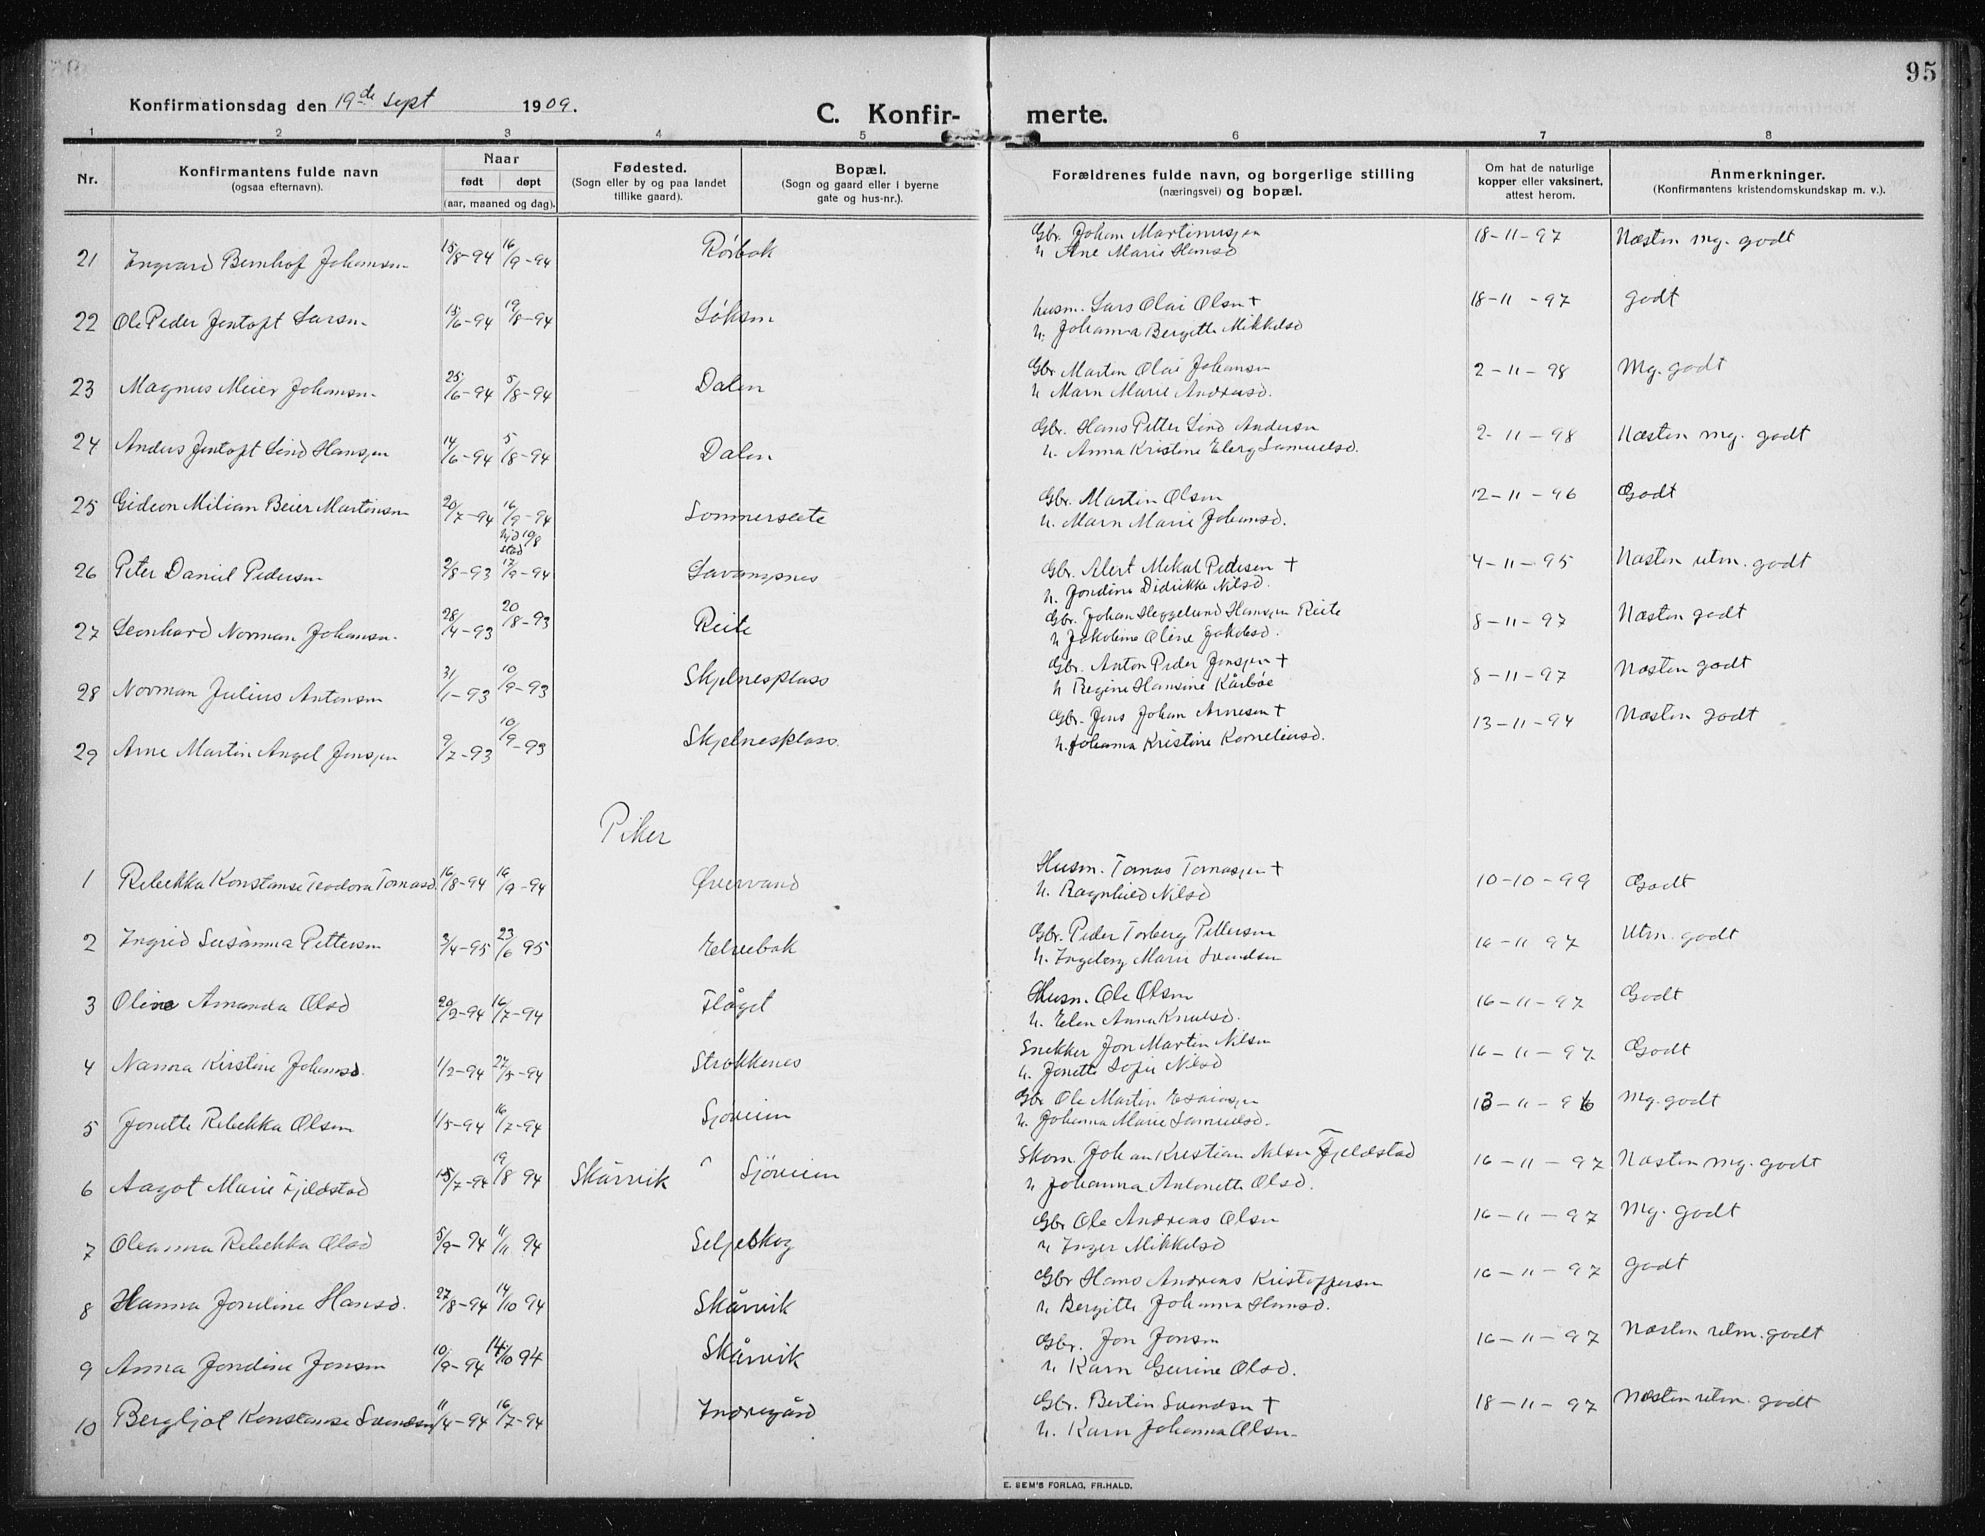 95
Konfirmationsdag den 19de Sept 1909.
C. Konfir- merte.
1 2 3 4 5 6 7 8
Nr.
Konfirmantens fulde navn
(ogsaa efternavn).
Naar
født døpt
(aar, maaned og dag).
Fødested.
(Sogn eller by og paa landet
tillike gaard).
Bopæl.
(Sogn og gaard eller i byerne
gate og hus-nr.).
Forældrenes fulde navn, og borgerlige stilling
(næringsvei) og bopæl.
Om hat de naturlige
kopper eller vaksinert,
attest herom.
Anmerkninger.
(Konfirmantens kristendomskundskap m. v.).
21 Ingvard Bernhof Johansen 15/8-94 16/9-94 Rörbak Gbr. Johan Martinussen 18-11-97 Næsten mg. godt
h. Ane Marie Hansd
22 Ole Peder Jentoft Larsn 15/6-94 19/8-94 Löksm husm. Lars Olai Olsn + 18-11-97 godt
h. Johanna Bergitte Mikkelsd
23 Magnus Meier Johansn 25/6-94 5/8-94 Dalen Gbr Martin Olai Johansn 2-11-98 Mg. godt
h Marn Marie Andreasd.
24 Anders Jentoft Lind Hansen 14/6-94 5/8-94 Dalen Gbr. Hans Petter Lind Andersn 2-11-98 Næsten mg. godt
h. Anna Kristine Elerg Samuelsd.
25 Gideon Milian Beier Martinsn 20/7-94 16/9-94 Sommersete Gbr. Martin Olsn 12-11-96 Godt
hjd 10/8
stad
h. Marn Marie Johansd.
26 Peter Daniel Pedersn 2/8-93 17/9-94 Lavangsnes Gbr. Alert Mikal Pedersen + 4-11-95 Næsten utm. godt
h. Jondine Didrikke Nilsd.
27 Leonhard Norman Johansn 28/4-93 20/8-93 Reite Gbr. Johan Heggelund Hansen Reite 8-11-97 Næsten godt
h Jakobine Oline Jakobsd.
28 Norman Julius Antonsn 31/1-93 10/9-93 Skjelnesplass Gbr. Anton Peder Jensen + 8-11-97 Næsten godt
h Regine Hansine Kårböe
29 Arne Martin Angel Jensen 9/7-93 10/9-93 Skjelnesplass. Gbr. Jens Johan Arnesen + 13-11-94 Næsten godt
h. Johanna Kristine Korneliusd.
Piker
1 Rebekka Konstanse Teodora Tomasd. 16/8-94 16/9-94 Övervand Husm. Tomas Tomassen + 10-10-99 Godt
h. Ragnhild Nilsd
2 Ingrid Susanna Pettersn 3/4-95 23/6 95 Elvebak Gbr. Peder Torberg Pettersn 16-11-97 Utm. godt
h. Ingeborg Marie Svendsen
3 Oline Amanda Olsd 20/2-94 16/7-94 Flåget Husm. Ole Olsn 16-11-97 Godt
h. Elen Anna Knutsd.
4 Nanna Kirstine Johansd. 1/2-94 27/5-94 Strokkenes Snekker Jon Martin Nilsn 16-11-97 Godt
h. Jonette Sofie Nilsd
5 Jonette Rebekka Olsen 1/5-94 16/7-94 Sjöveien Gbr Ole Martin Esaiassen 13-11-96 Mg. godt
h. Johanna Marie Samuelsd.
6 Aagot Marie Fjeldstad 15/7-94 19/8 94 Skårvik Sjöveien Skom. Johan Kristian Nilsen Fjeldstad 16-11-97 Næsten mg. godt
h Johanna Antonette Olsd.
7 Oleanna Rebekka Olsd 5/9-94 11/11 94 Seljeskog Gbr Ole Andreas Olsn 16-11-97 Mg. godt
h Inger Mikkelsd
8 Hanna Jondine Hansd. 27/8-94 14/10 94 Skårvik Gbr Hans Andreas Kristoffersn 16-11-97 godt
h Bergitte Johanna Hansd.
9 Anna Jondine Jonsn 10/9-94 14/10 94 Skårvik Gbr. Jon Jonsn 16-11-97 Næsten utm. godt
h Karn Gurine Olsd.
10 Bergljot Konstanse Svendsn 11/4-94 16/7-94 Indregård Gbr. Bertin Svendsn + 18-11-97 Næsten utm. godt
h. Karn Johanna Olsn
E. SEM'S FORLAG, FR.HALD.